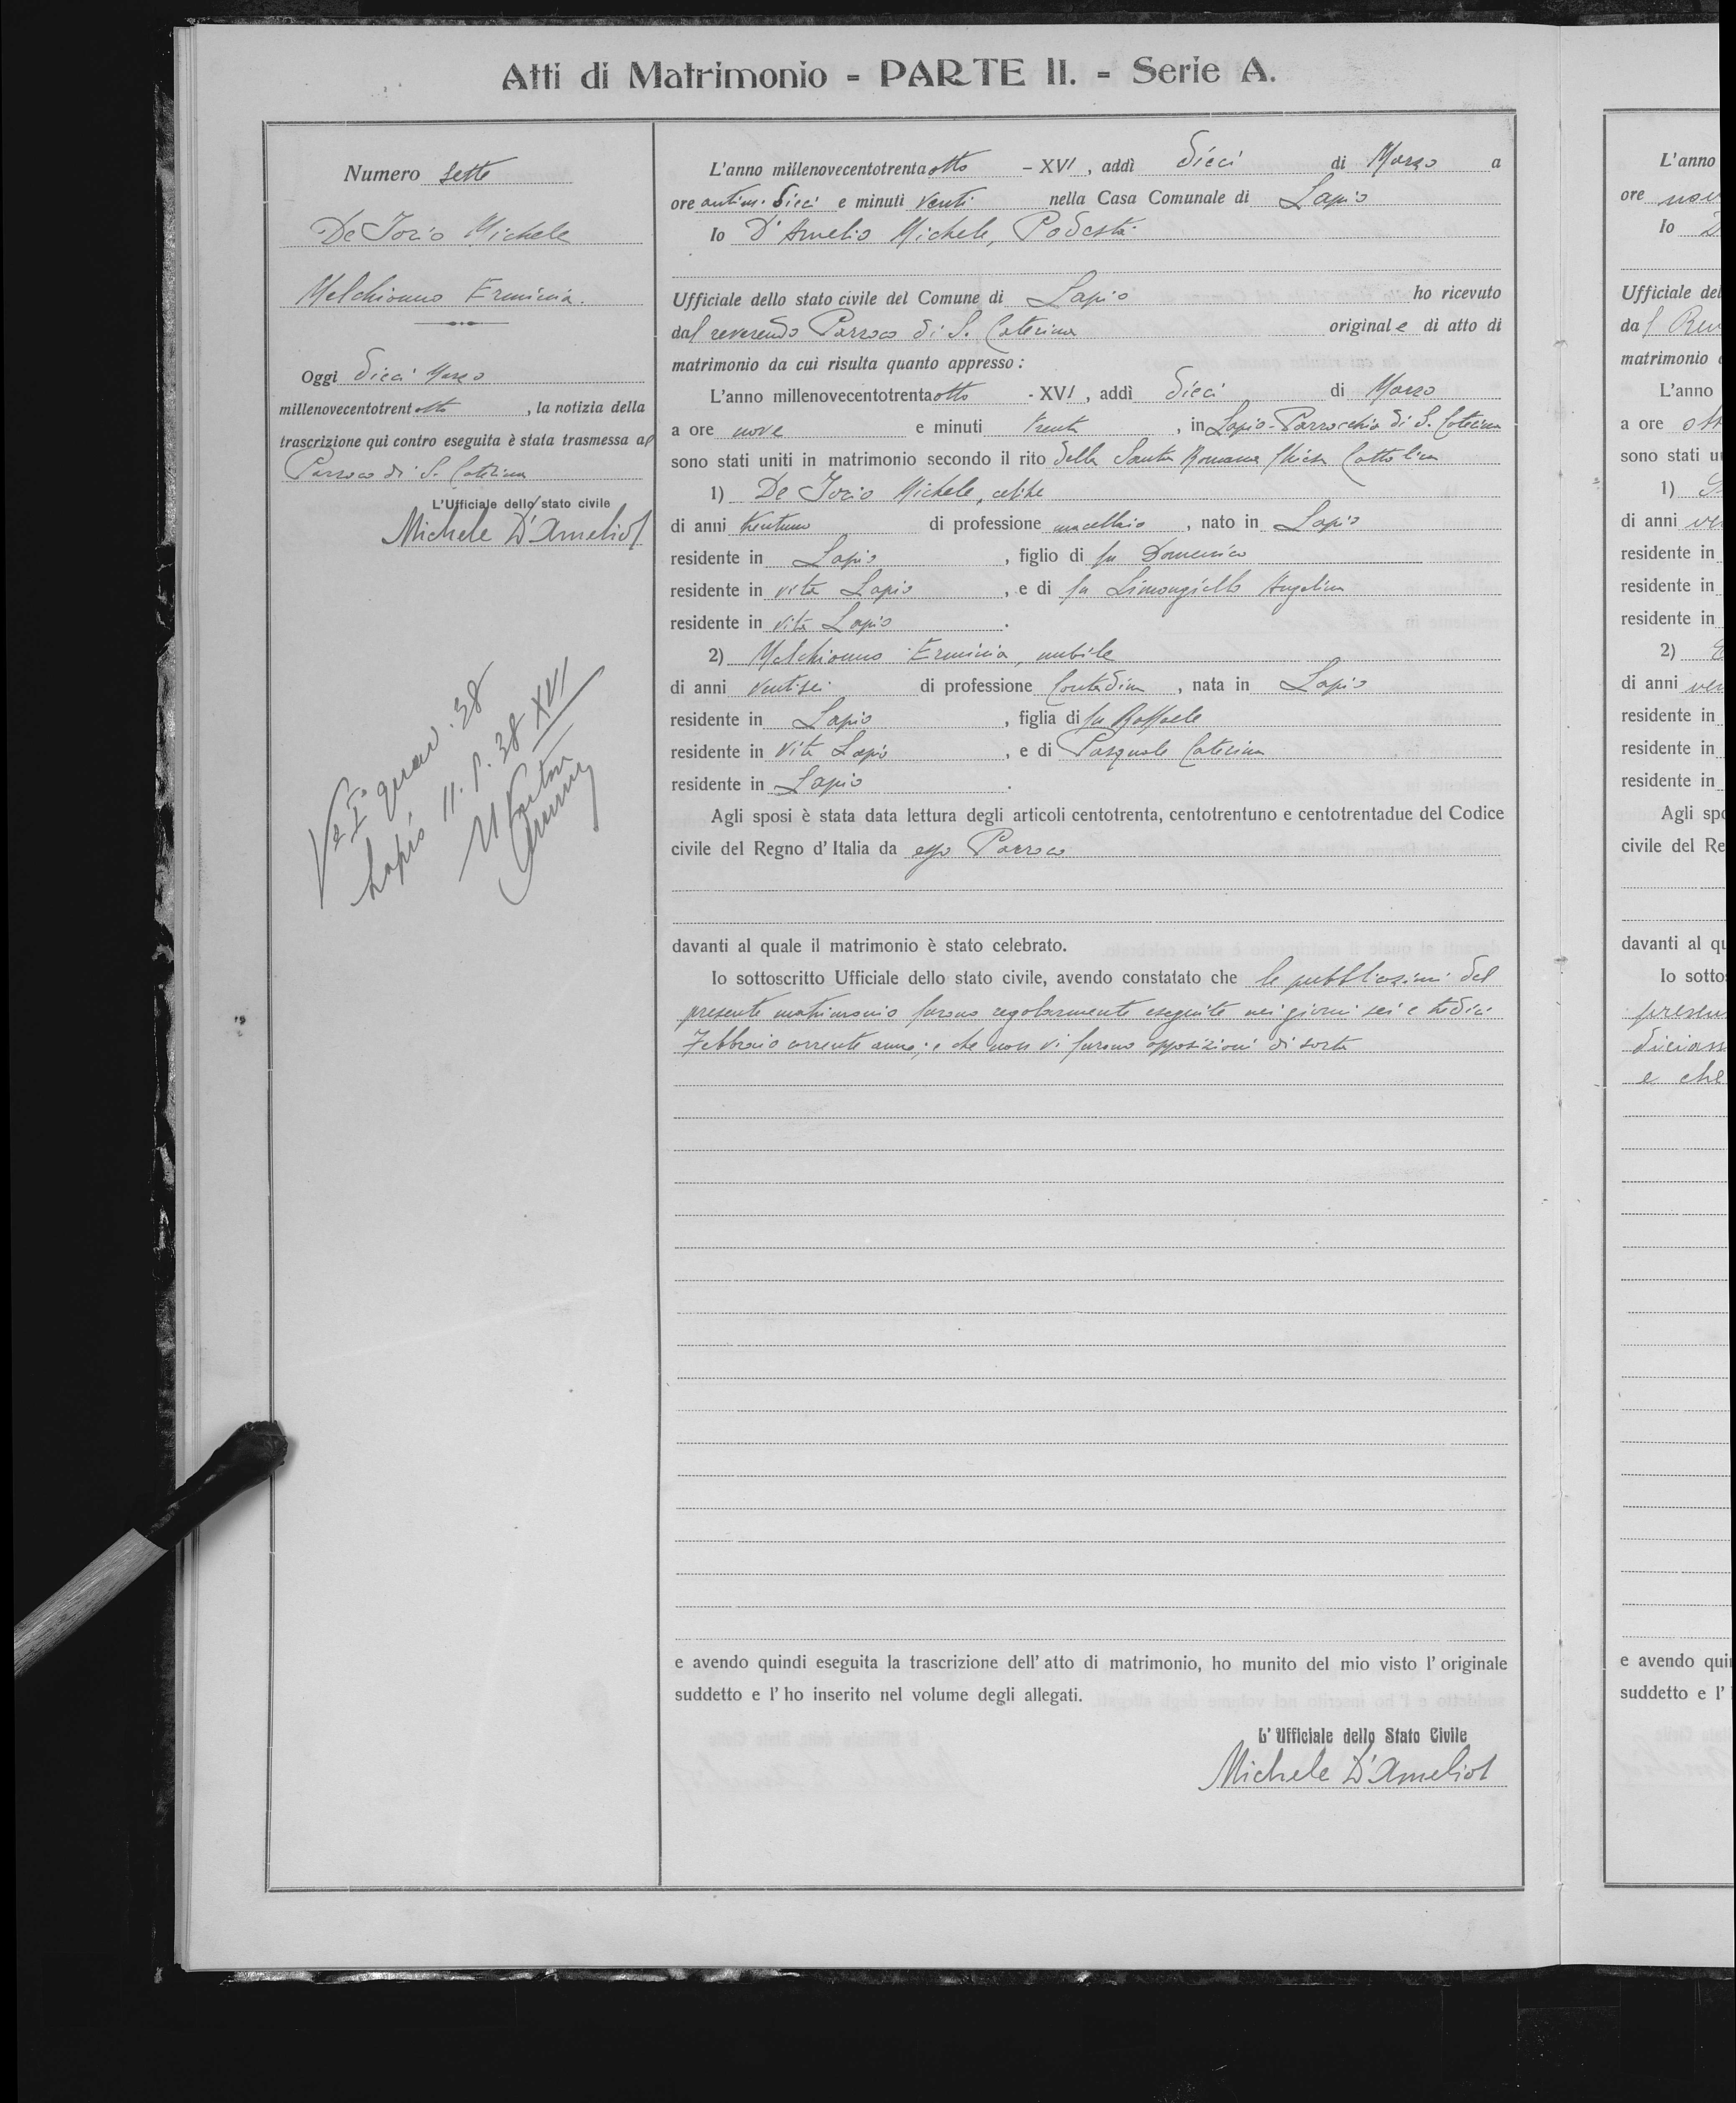 Atti di Matrimonio - PARTE II. - Serie A.
Numero sette
De Iorio Michele
Melchionno Erminia.
Oggi dieci Marzo
millenovecentotrentotto, la notizia della
trascrizione qui contro eseguita è stata trasmessa al
Parroco di S. Caterina
L'Ufficiale dello stato civile
Michele D'Amelio
Lapio 11. 38 XVI
L'anno millenovecentotrentaotto - XVI, addì dieci di Marzo a
ore antim. dieci e minuti venti nella Casa Comunale di Lapio
Io D'Amelio Michele, Podestà
Ufficiale dello stato civile del Comune di Lapio ho ricevuto
dal reverendo Parroco di S. Caterina originale di atto di
matrimonio da cui risulta quanto appresso:
L'anno millenovecentotrentaotto - XVI, addì dieci di Marzo
a ore nove e minuti trenta, in Lapio - Parrocchia di S. Caterina
sono stati uniti in matrimonio secondo il rito della Santa Romana Chiesa Cattolica
1) De Iorio Michele, celibe
di anni trentuno di professione macellaio, nato in Lapio
residente in Lapio, figlio di fu Domenico
residente in vita Lapio, e di fu Limongiello Angelina
residente in vita Lapio.
2) Melchionno Erminia, nubile
di anni ventisei di professione contadina, nata in Lapio
residente in Lapio, figlia di fu Raffaele
residente in vita Lapio, e di Pasquale Caterina
residente in Lapio.
Agli sposi è stata data lettura degli articoli centotrenta, centotrentuno e centotrentadue del Codice
civile del Regno d'Italia da esso Parroco
davanti al quale il matrimonio è stato celebrato.
Io sottoscritto Ufficiale dello stato civile, avendo constatato che le pubblicazioni del
presente matrimonio furono regolarmente eseguite nei giorni sei e tredici
Febbraio corrente anno; e che non vi furono opposizioni di sorta
e avendo quindi eseguita la trascrizione dell'atto di matrimonio, ho munito del mio visto l'originale
suddetto e l'ho inserito nel volume degli allegati.
L'Ufficiale dello Stato Civile
Michele D'Amelio
L'anno
ore
Io
Ufficiale del
da
matrimonio
L'anno
a ore
sono stati
1)
di anni
residente in
residente in
residente in
2)
di anni
residente in
residente in
residente in
Agli
civile del Re
davanti al
Io
e che
e avendo
suddetto e l'